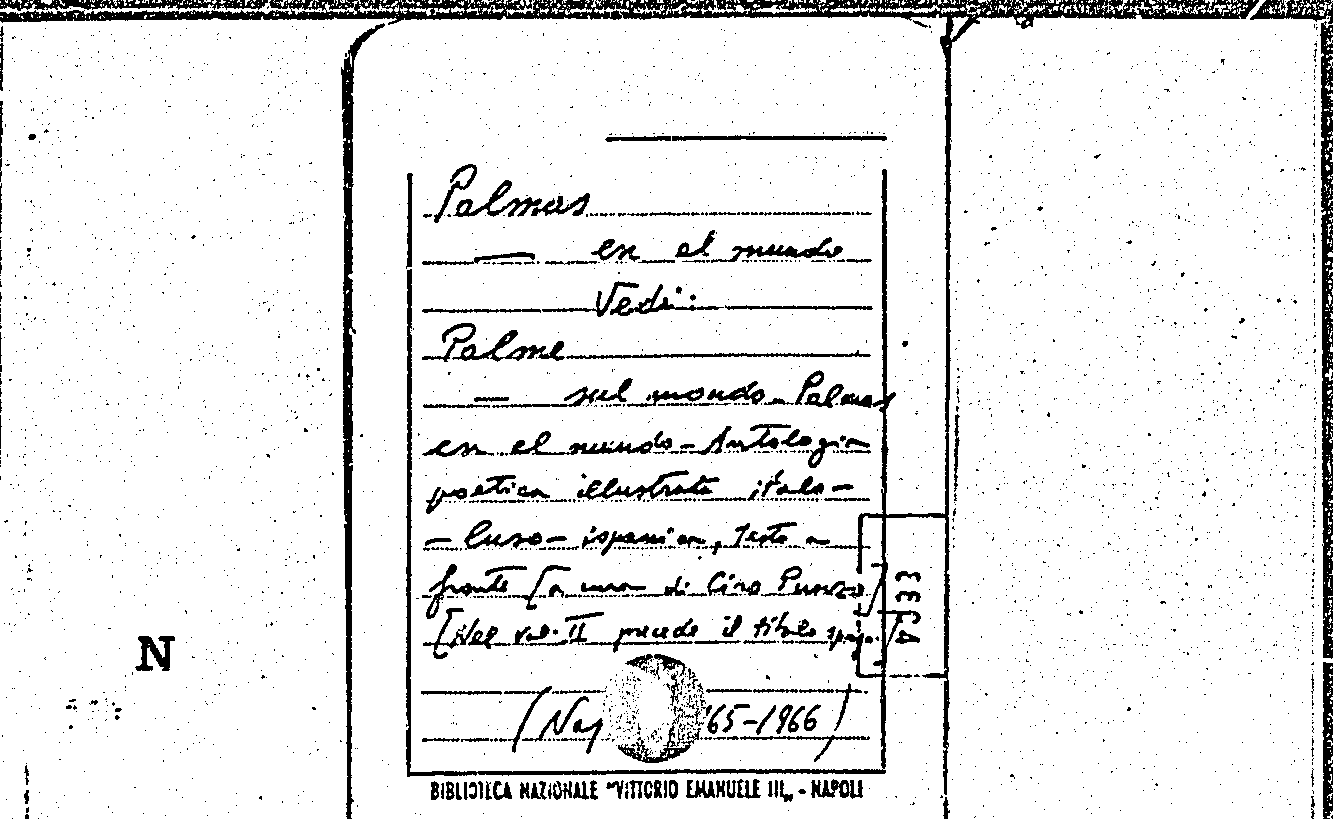 Palmas
— en el mundo
Vedi:
Palme
— nel mondo - Palmas
en el mundo - Antologia
poetica illustrata italo-
- luso - ispanica, testo a
fronte [a cura di Ciro Punzo]
[Nel vol. II precede il titolo
(Nap 65-1966)
BIBLIOTECA NAZIONALE "VITTORIO EMANUELE III„ - NAPOLI
N